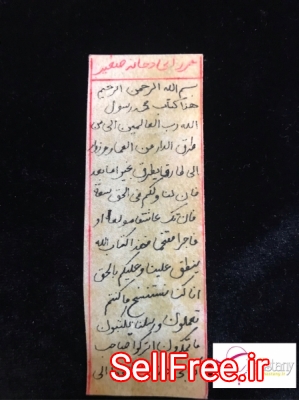 حرز ابی دجانه صغیر
بسم الله الرحمن الرحیم
هذا کتاب محمد رسول
الله رب العالمین الی من
طرق الدار من العمار و زوار
الی طارق یطرق بخیر اما بعد
فان لنا ولکم فی الحق سعة
فان تک عاشقا مولعا او
فاجرا مقتحما فهذا کتاب الله
ینطق علینا وعلیکم بالحق
انا کنا نستنسخ ما کنتم
تعملون و رسلنا یکتبون
ما تمکرون اترکوا صاحب
الی
stany
SellFree.ir